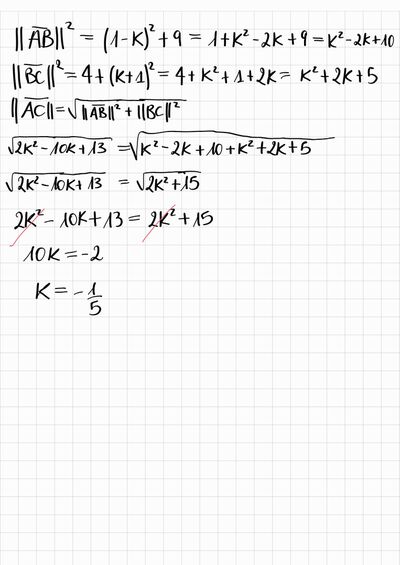 ||AB||² = (1-K)² + 9 = 1+K² - 2K + 9 = K² - 2K + 10
||BC||² = 4 + (K+1)² = 4 + K² + 1 + 2K = K² + 2K + 5
||AC|| = √||AB||² + ||BC||²
√2K² - 10K + 13 = √K² - 2K + 10 + K² + 2K + 5
√2K² - 10K + 13 = √2K² + 15
2K² - 10K + 13 = 2K² + 15
10K = -2
K = -1/5